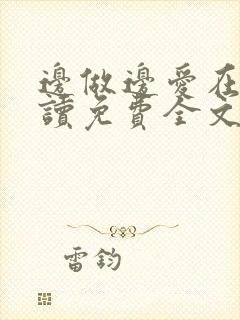 邊做邊愛在
讀免費全文
雷鈞